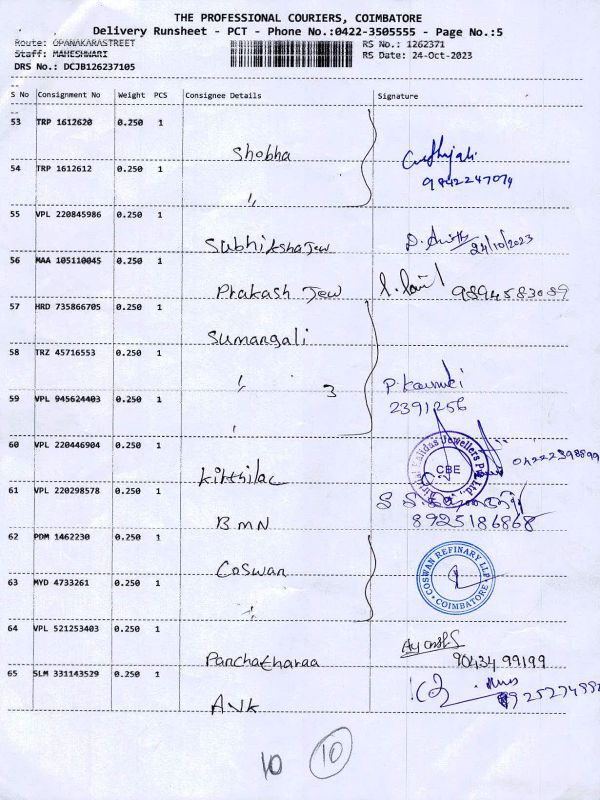 THE PROFESSIONAL COURIERS, COIMBATORE
Delivery Runsheet - PCT - Phone No.:0422-3505555 - Page No.:5
Route: OPANAKARASTREET RS No.: 1262371
Staff: MAHESHWARI RS Date: 24-Oct-2023
DRS No.: DCJB126237105
S No Consignment No Weight PCS Consignee Details Signature
53 TRP 1612620 0.250 1
Shobha
54 TRP 1612612 0.250 1
9842247074
〃
55 VPL 220845986 0.250 1
Subhiksha Jew 24/10/2023
56 MAA 105110045 0.250 1
Prakash Jew 9894583089
57 HRD 735866705 0.250 1
Sumangali
58 TRZ 45716553 0.250 1
〃 3
59 VPL 945624403 0.250 1
2391256
〃
60 VPL 220446904 0.250 1
Kirthilac
CBE
61 VPL 220298578 0.250 1
BMN 8925186868
62 PDM 1462230 0.250 1
Coswan
COSWAN REFINARY LLP
COIMBATORE
63 MYD 4733261 0.250 1
〃
64 VPL 521253403 0.250 1
Panchatharaa 90434 99199
65 SLM 331143529 0.250 1
AVK
10 10